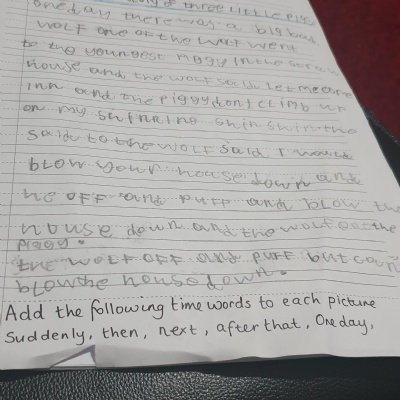 of three little pigs
one day there was a big bad
wolf one of the went
to the youngest piggy in the
house and the wolf said let me
inn and the piggy dont climb up
on my shin shin
said to the wolf said I
blow your house down and
he off and puff and blow the
house down and the wolf the
piggy.
the wolf off and puff but
blow the house down.
Add the following time words to each picture
Suddenly, then, next, after that, One day,